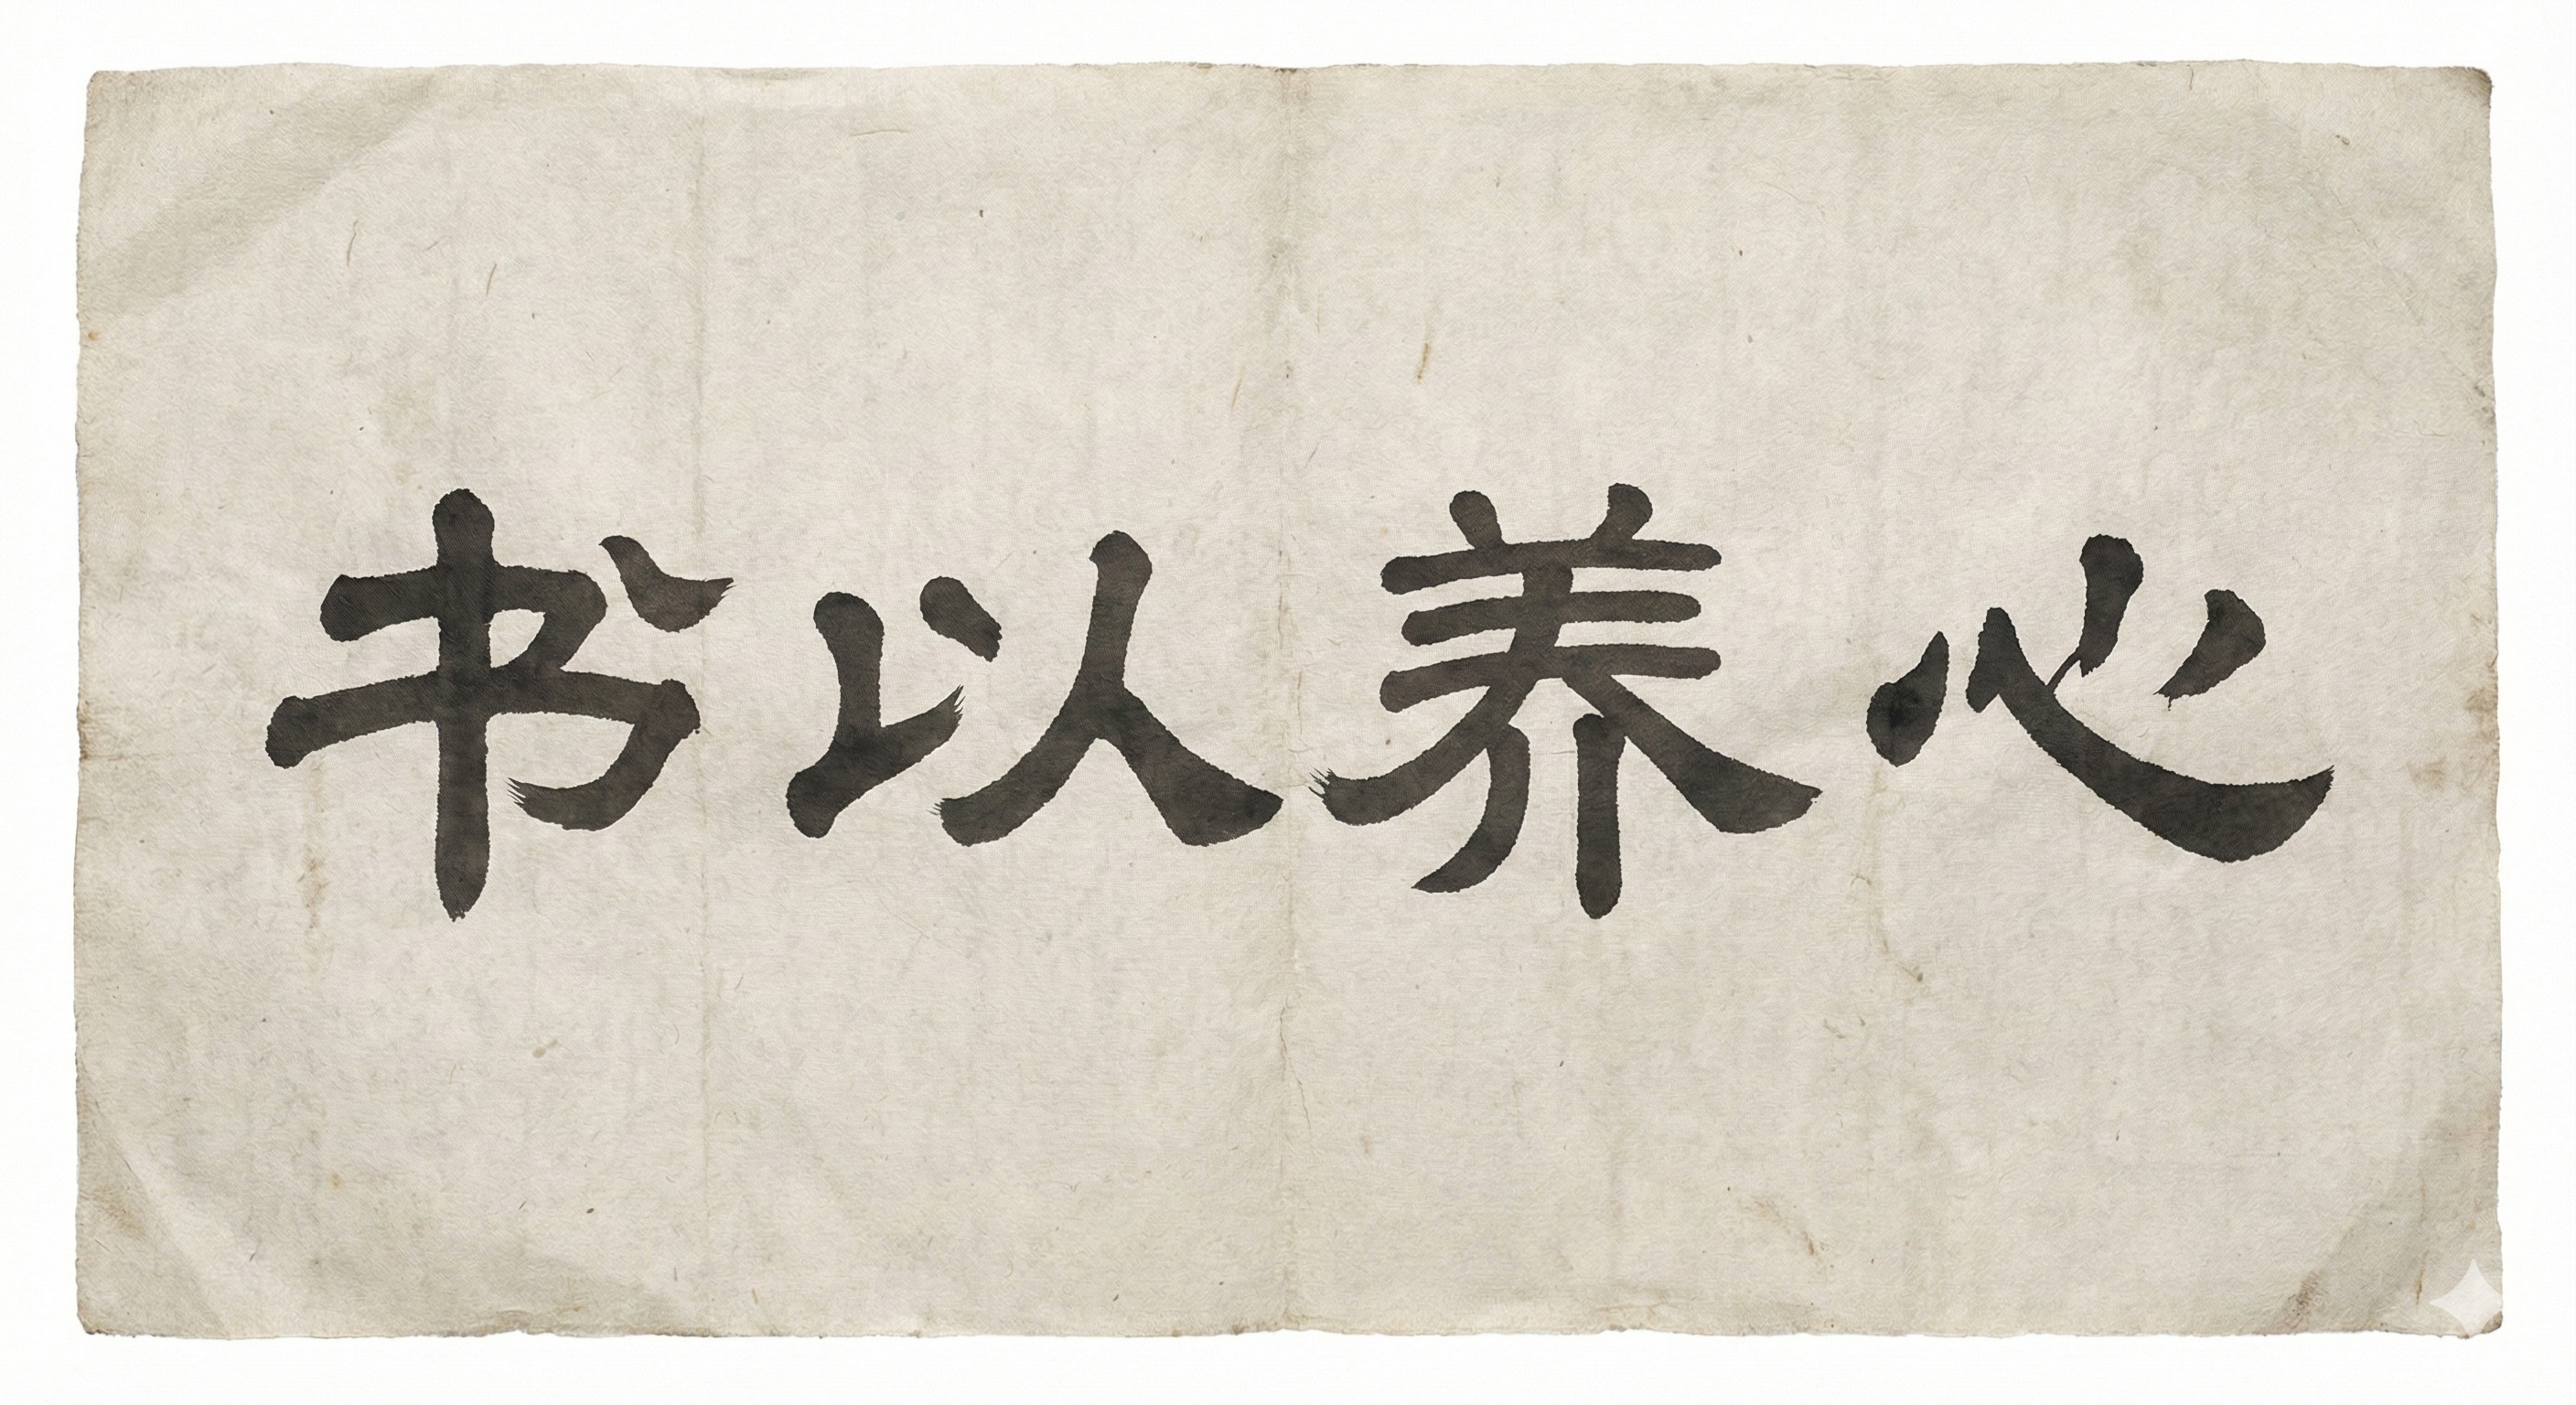 书以养心